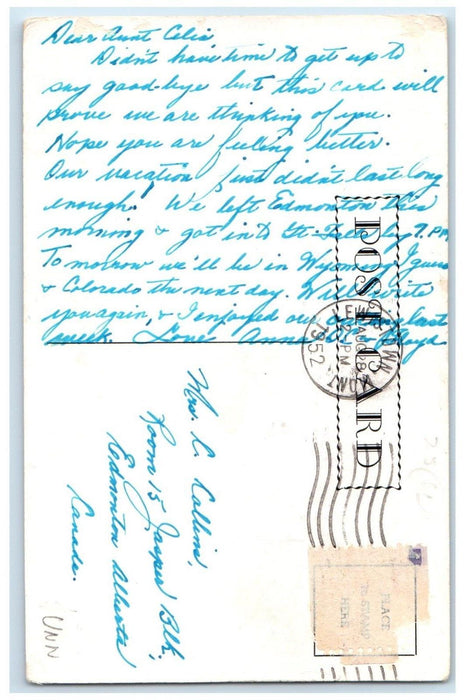 Dear Aunt Celia
Didn't have time to get up to
say good-bye but this card will
prove we are thinking of you.
Hope you are feeling better.
Our vacation just didn't last long
enough! We left Edmonton this
morning & got into Gt. Falls by 7 PM
Tomorrow we'll be in Wyoming I guess
& Colorado the next day. Will write
you again, & I enjoyed our last
week. Love Ann & Lloyd
POST CARD
AUG 28
PM
1952
MONT
Mrs. C. Collin,
Room 15 Jasper Blk,
Edmonton Alberta
Canada.
PLACE
STAMP
HERE
UNN